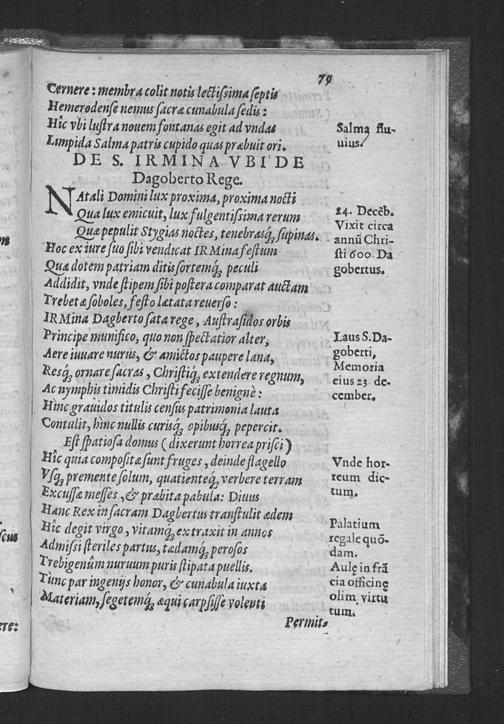 79
Cernere: membra colit notis lectissima septis
Hemerodense nemus sacræ cunabula sedis:
Hîc vbi lustra nouem fontanas egit ad vndas
Limpida Salma patris cupido quas præbuit ori.
Salma flu-
uius.
DE S. IRMINA VBI DE
Dagoberto Rege.
NAtali Domini lux proxima, proxima nocti
Qua lux emicuit, lux fulgentissima rerum
Quæ pepulit Stygias noctes, tenebrasq́; supinas.
Hoc ex iure suo sibi vendicat IRMina festum
Quæ dotem patriam ditis sortemq́; peculi
Addidit, vnde stipem sibi postera comparat auctam
Trebetæ soboles, festo lætata reuerso:
24. Decẽb.
Vixit circa
annũ Chri-
sti 600. Da
gobertus.
IRMina Dagberto sata rege, Austrasidos orbis
Principe munifico, quo non spectatior alter,
Aere iuuare nurus, & amictos paupere lana,
Resq́; ornare sacras, Christiq́; extendere regnum,
Ac nymphis timidis Christi fecisse benignè:
Hinc grauidos titulis census patrimonia lauta
Contulit, hinc nullis curisq́; opibusq́; pepercit.
Laus S. Da-
goberti,
Memoria
eius 23. de-
cember.
Est spatiosa domus (dixerunt horrea prisci)
Hîc quia compositæ sunt fruges, deinde flagello
Vsq́; premente solum, quatienteq́; verbere terram
Excussæ messes, & præbita pabula: Diuus
Vnde hor-
reum dic-
tum.
Hanc Rex in sacram Dagbertus transtulit ædem
Hîc degit virgo, vitamq́; extraxit in annos
Admissi steriles partus, tædamq́; perosos
Trebigenûm nuruum puris stipata puellis.
Tunc par ingenijs honor, & cunabula iuxta
Materiam, segetemq́; æqui carpsisse volenti
Palatium
regale quõ-
dam.
Aulę in frã
cia officinę
olim virtu
tum.
Permit-